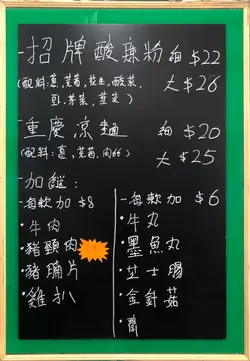 -招牌酸辣粉 細 $22
(配料:蔥,芫茜,花生,酸菜, 大 $26
豆.芽菜,韮菜)
-重慶涼麵 細 $20
(配料:蔥,芫茜,肉絲) 大 $25
-加餸:
-每款加 $8
·牛肉
·豬頸肉
·豬腩片
·雞扒
-每款加 $6
·牛丸
·墨魚丸
·芝士腸
·金針菇
·齋